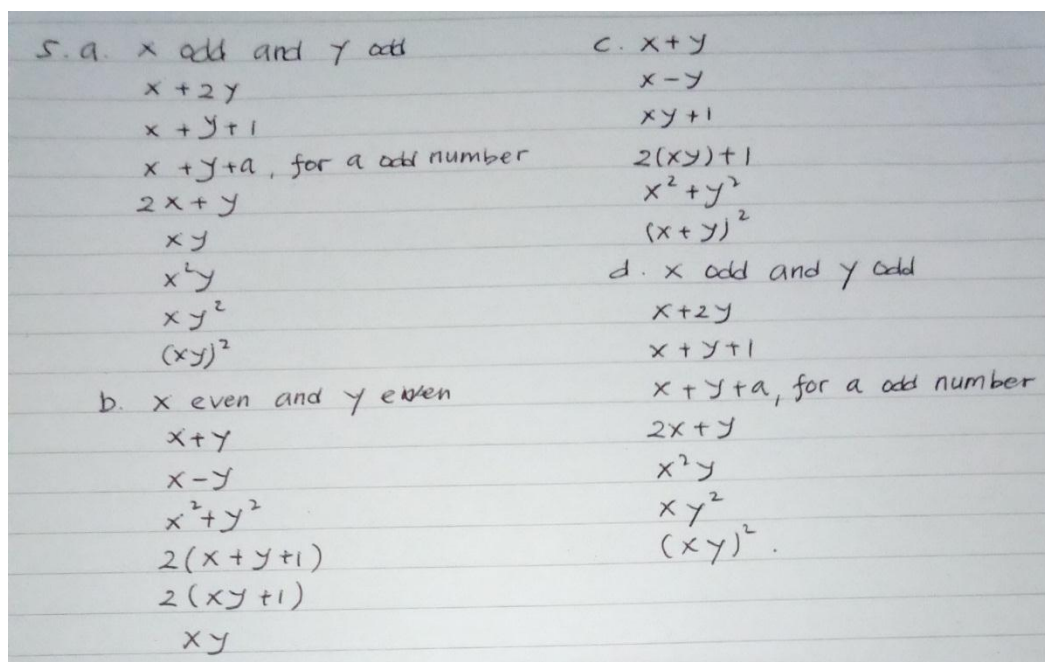 5. a. x odd and y odd
x + 2y
x + y + 1
x + y + a, for a odd number
2x + y
xy
x²y
xy²
(xy)²
b. x even and y even
x + y
x - y
x² + y²
2(x + y + 1)
2(xy + 1)
xy
c. x + y
x - y
xy + 1
2(xy) + 1
x² + y²
(x + y)²
d. x odd and y odd
x + 2y
x + y + 1
x + y + a, for a odd number
2x + y
x²y
xy²
(xy)².